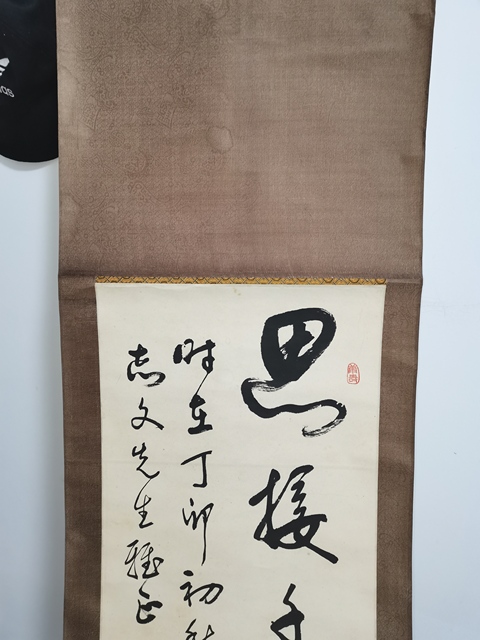 思接千
时在丁卯初秋
志文先生雅正